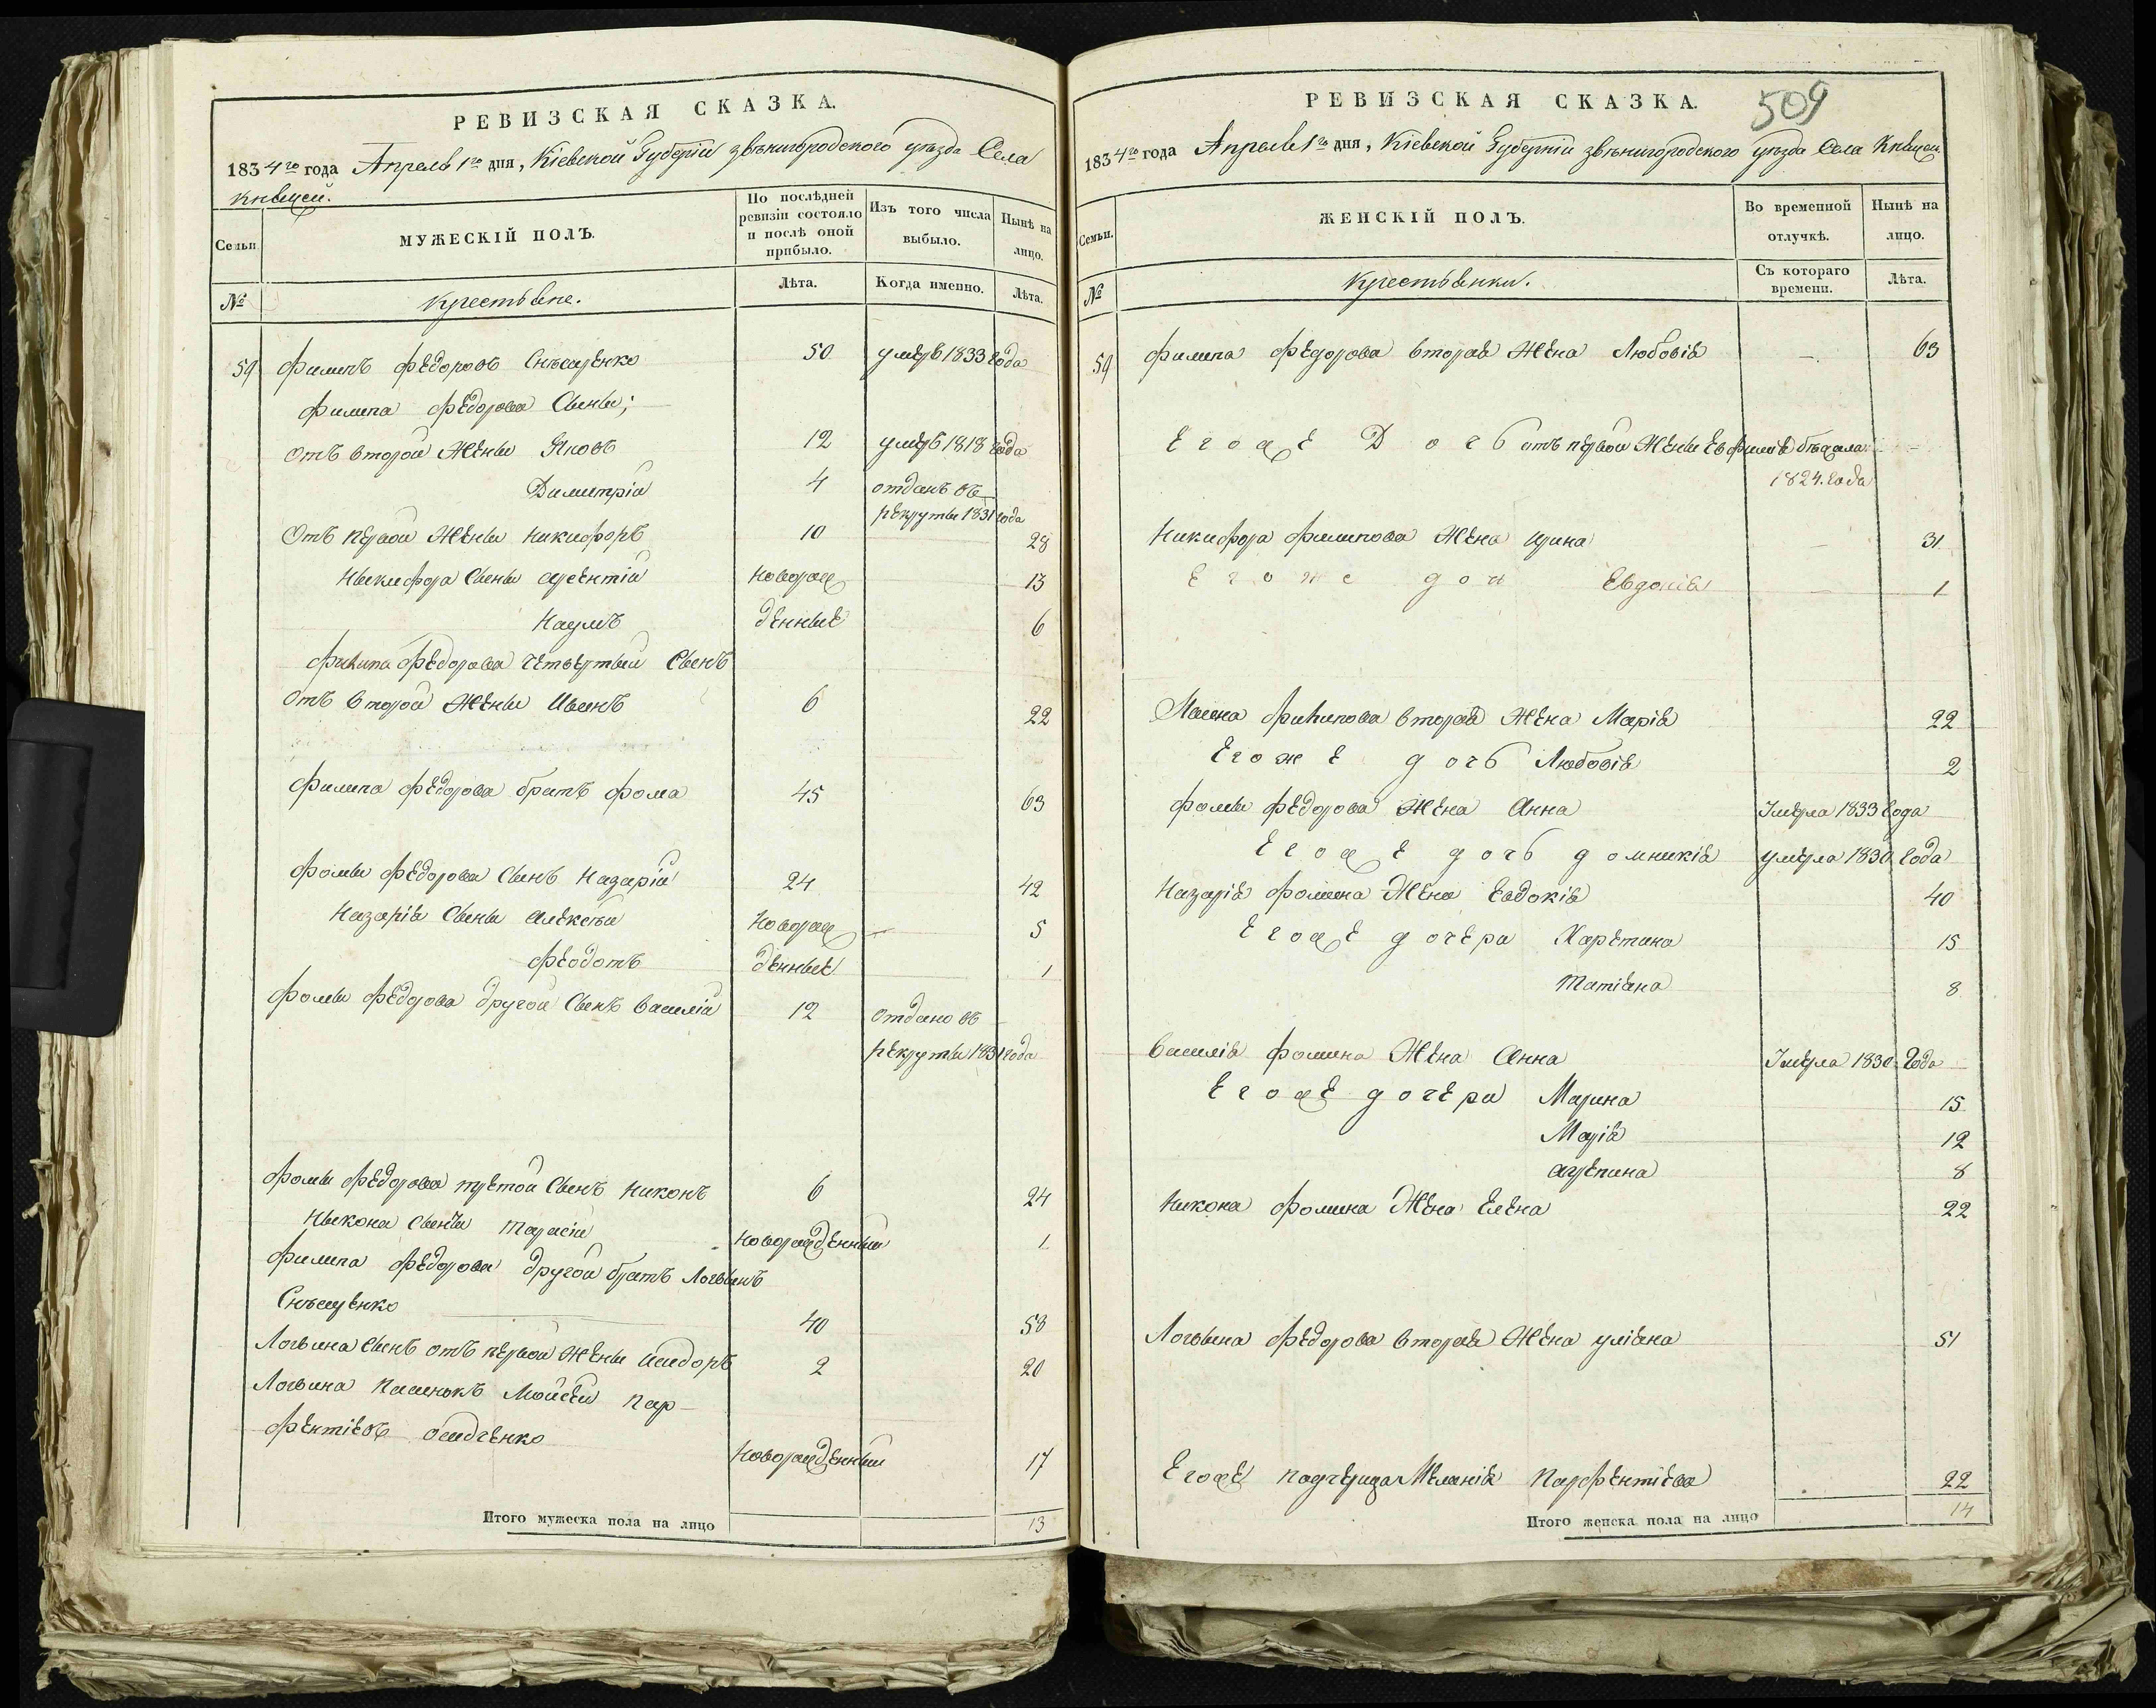 РЕВИЗСКАЯ СКАЗКА.
1834го года Апреля 1го дня, Кіевской Губерніи звѣнигородского уезда Села
Княжей.
Семьи
МУЖЕСКІЙ ПОЛЪ.
По послѣдней ревизіи состояло и послѣ оной прибыло.
Изъ того числа выбыло.
Нынѣ на лицо.
№
Крестьяне.
Лѣта.
Когда именно.
Лѣта.
59 Филипъ Федоровъ Снѣсаренко 50 умеръ 1833 года
Филипа Федорова Сыны;
Отъ второй Жены Яковъ 12 умеръ 1818 года
Димитрій 4 отданъ въ
рекруты 1831 года
Отъ первой Жены Никифоръ 10 28
Никифора Сыны Арсентій новорож 13
Наумъ денные 6
Филипа Федорова четвертый Сынъ
Отъ второй Жены Иванъ 6 22
Филипа Федорова братъ Фома 45 63
Фомы Федорова Сынъ Назарій 24 42
Назарія Сыны Алексѣй новорож 5
Федотъ денные 1
Фомы Федорова другой Сынъ Василій 12 отдано въ
рекруты 1831 года
Фомы Федорова третой Сынъ Никонъ 6 24
Никона Сынъ Тарасій новорожденный 1
Филипа Федорова другой братъ Логвинъ
Снѣсаренко 40 58
Логвина Сынъ отъ первой Жены Исидоръ 2 20
Логвина Пасынокъ Мойсей Пар-
фентіевъ новорожденный 17
Итого мужеска пола на лицо 13
509
РЕВИЗСКАЯ СКАЗКА.
1834го года Апреля 1го дня, Кіевской Губерніи звѣнигородского уезда Села Княжей
Семьи.
ЖЕНСКІЙ ПОЛЪ.
Во временной отлучкѣ.
Нынѣ на лицо.
№
Крестьянки.
Съ котораго времени.
Лѣта.
59 Филипа Федорова вторая Жена Любовія - 63
Егоже Дочь отъ первой Жены Евфимія бѣжала
1824. года
Никифора Филипова Жена Ирина - 31
Егоже доч Евдокія - 1
Ивана Филипова вторая Жена Марія 22
Егоже дочь Любовія 2
Фомы Федорова Жена Анна Умерла 1833 года
Егоже дочь Домникія умерла 1830 года
Назарія Фомина Жена Евдокія 40
Егоже дочери Харетина 15
Татіяна 8
Василія Фомина Жена Анна Умерла 1830 года
Егоже дочери Марина 15
Марія 12
Агрепина 8
Никона Фомина Жена Елена 22
Логвина Федорова вторая Жена Уліяна 51
Егоже падчерица Меланія Парфентіева 22
Итого женска пола на лицо 14